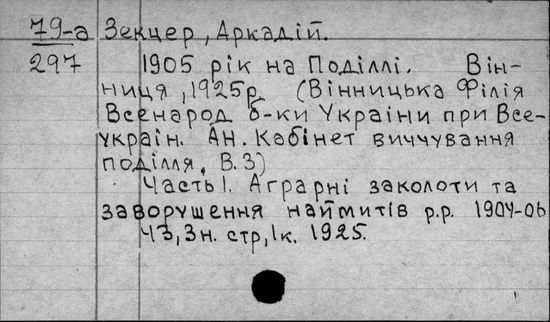 79-а Зекцер, Аркадій.
297 1905 рік на Поділлі. Він-
ниця, 1925р. (Вінницька Філія
Всенарод б-ки України при Все-
україн. Ан. Кабінет виччування
поділля, В.3)
Часть I. Аграрні заколоти та
заворушення наймитів р.р. 1904-06
43, 3н. стр, 1к. 1925.